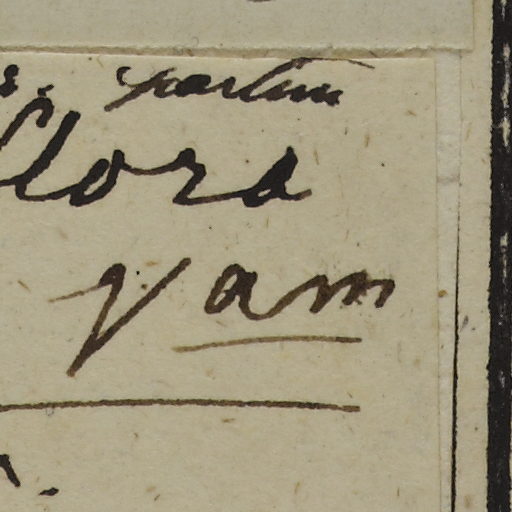 s. partim
flora
γ am